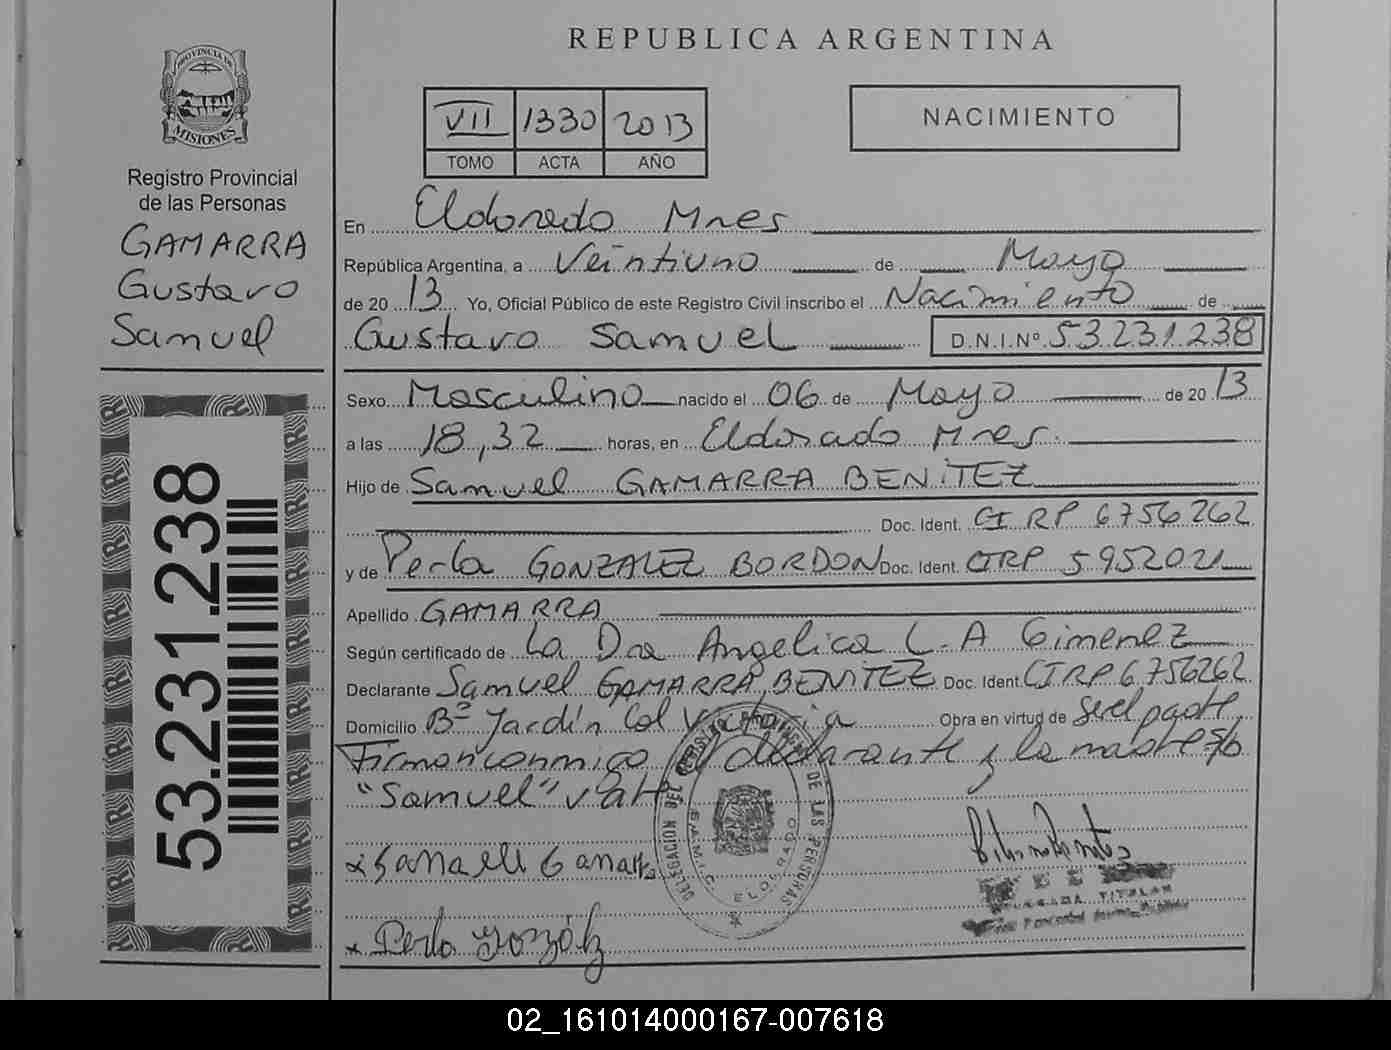 REPUBLICA ARGENTINA
PROVINCIA DE
MISIONES
Registro Provincial
de las Personas
GAMARRA
Gustavo
Samuel
53.231.238
VII 1330 2013
TOMO ACTA AÑO
NACIMIENTO
En Eldorado Mnes
República Argentina, a Veintiuno de Mayo
de 2013 Yo, Oficial Público de este Registro Civil inscribo el Nacimiento de
Gustavo Samuel D.N.I.Nº 53.231.238
Sexo Masculino nacido el 06 de Mayo de 2013
a las 18,32 horas, en Eldorado Mnes.
Hijo de Samuel GAMARRA BENiTEZ
Doc. Ident. CI RP 6756262
y de Perla GONZALEZ BORDON Doc. Ident. CIRP 5952021
Apellido GAMARRA
Según certificado de La Dra Angelica L.A Gimenez
Declarante Samuel GAMARRA BENiTEZ Doc. Ident. CIRP 6756262
Domicilio Bº Jardín Col Victoria Obra en virtud de ser el padre
Firman conmigo el declarante y la madre s/b
"Samuel" vale
x Samuel Gamarra
x Perla González
DELEGACION DEL REGISTRO PROVINCIAL DE LAS PERSONAS
ELDORADO
TITULAR
02_161014000167-007618